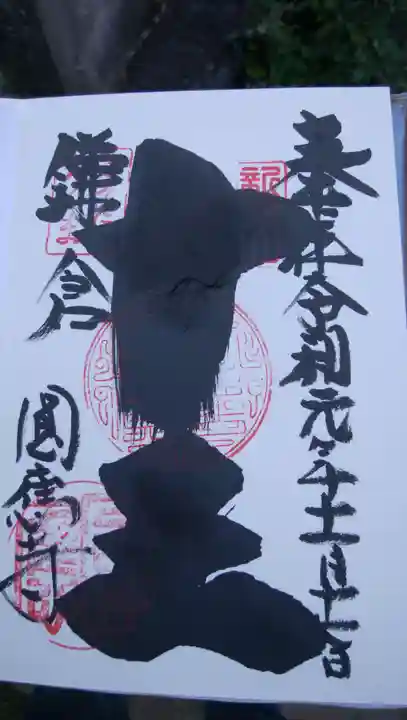 奉拝 令和元年十一月十一日
十王
鎌倉 圓應寺